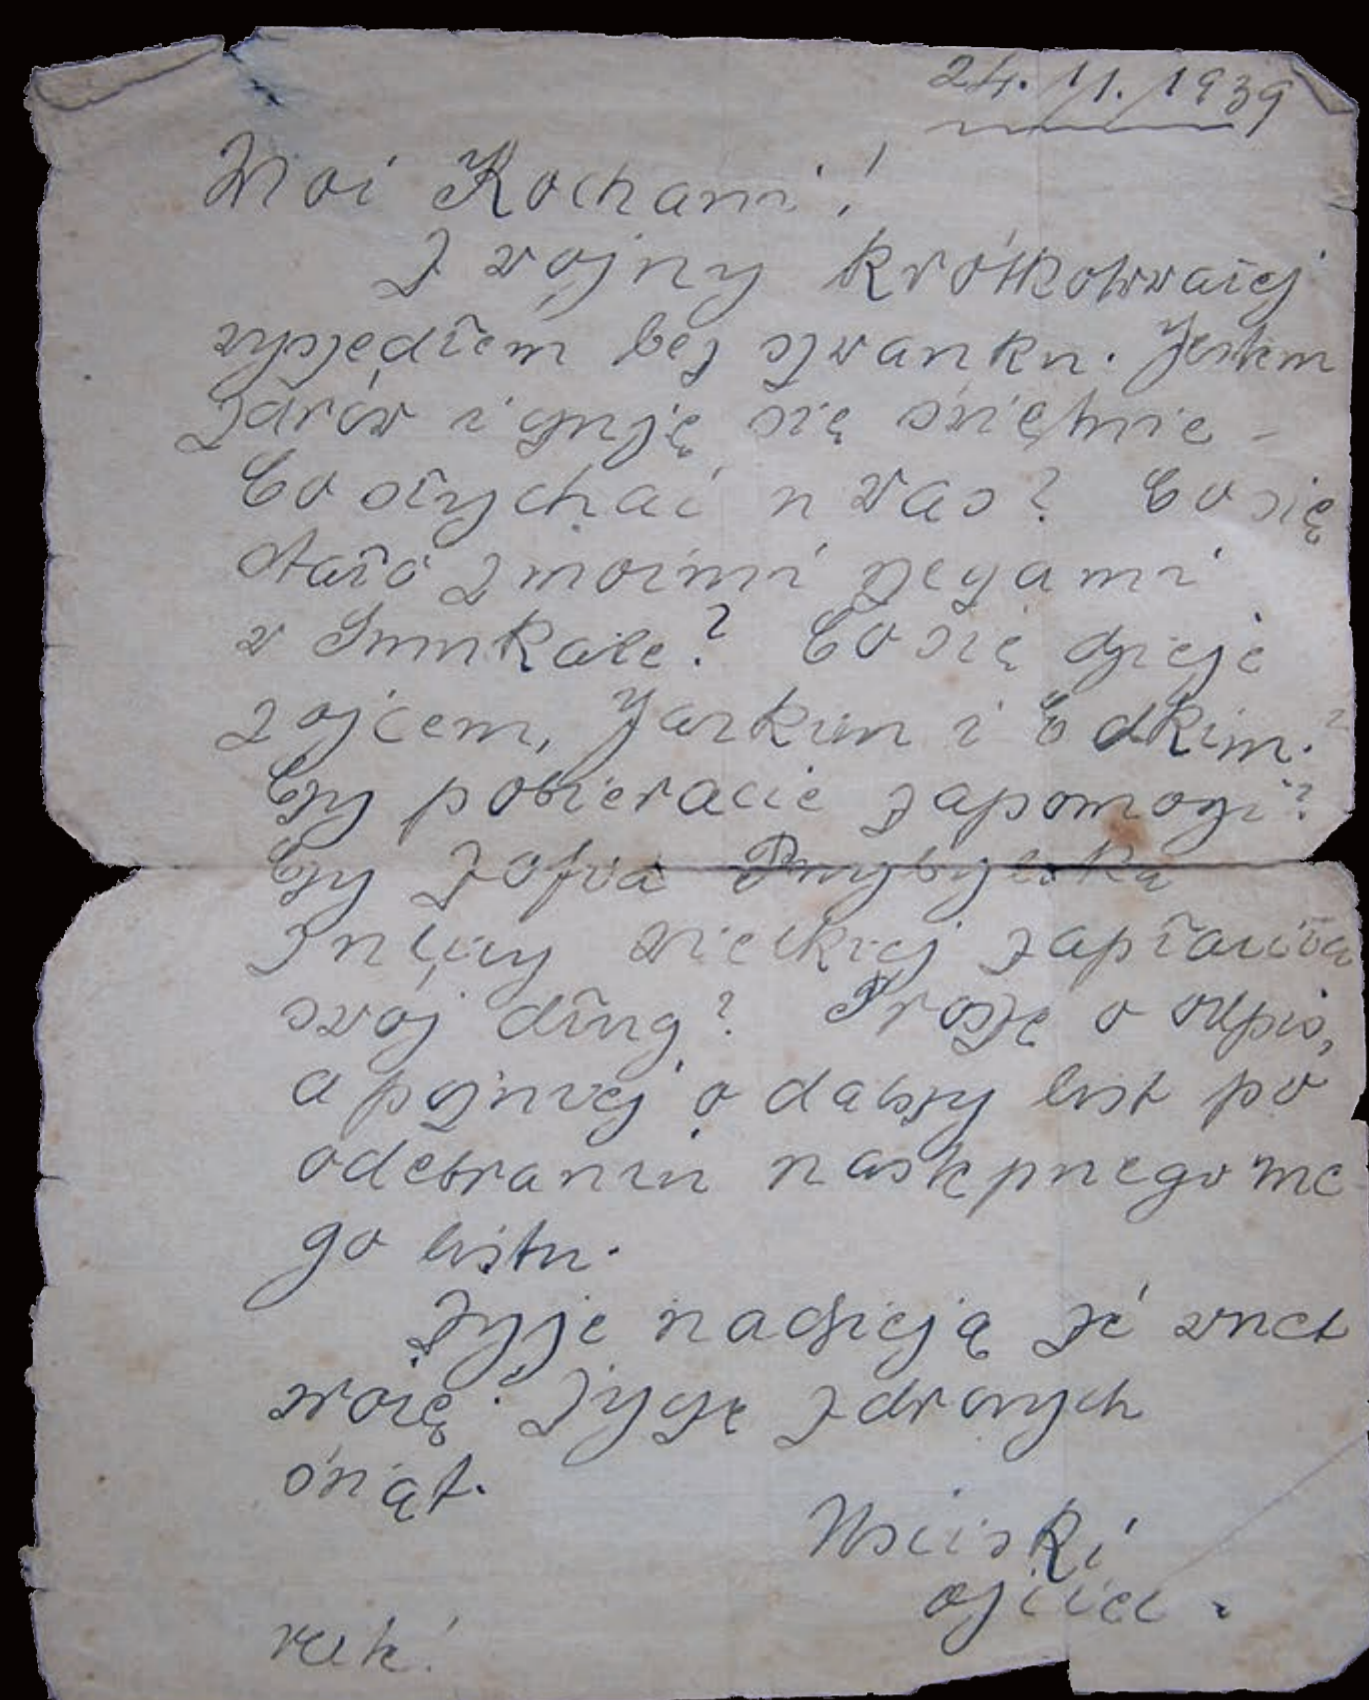 24. 11. 1939
Moi Kochani!
Z wojny krótkotrwałej
wyszedłem bez szwanku. Jestem
zdrów i czuję się świetnie -
Co słychać u was? Co się
stało z moimi
w? Co się dzieje
z ojcem, Jarkim i Edkim?
Czy pobieracie zapomogi?
Czy Zofia Przybylska
wielkiej zapłaciła
swój dług? Proszę o odpis,
a później o dalszy list po
odebraniu następnego me-
go listu.
Żyję nadzieją że wnet
wrócę. Życzę zdrowych
świąt.
Uściski
ojciec.